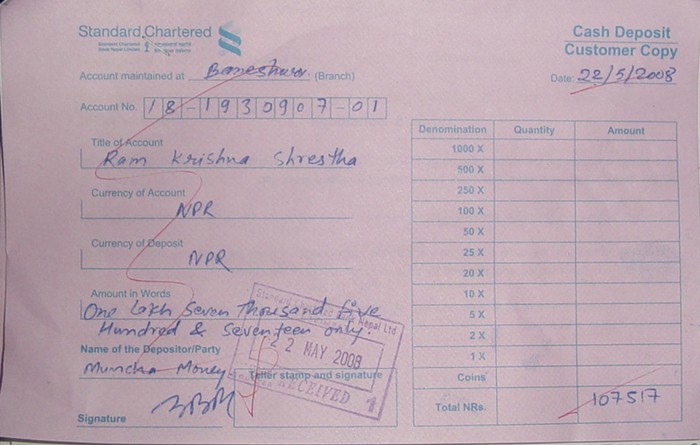 Standard Chartered
Cash Deposit
Customer Copy
Account maintained at Baneshwor (Branch)
Date: 22/5/2008
Account No. 18-1930907-01
Title of Account
Ram Krishna Shrestha
Currency of Account
NPR
Currency of Deposit
NPR
Amount in Words
One lakh Seven thousand five
Hundred & seventeen only.
Name of the Depositor/Party
Muncha Money
Signature
Standard Chartered Bank Nepal Ltd
22 MAY 2008
RECEIVED
1
Teller stamp and signature
Denomination Quantity Amount
1000 X
500 X
250 X
100 X
50 X
25 X
20 X
10 X
5 X
2 X
1 X
Coins
Total NRs. 107517